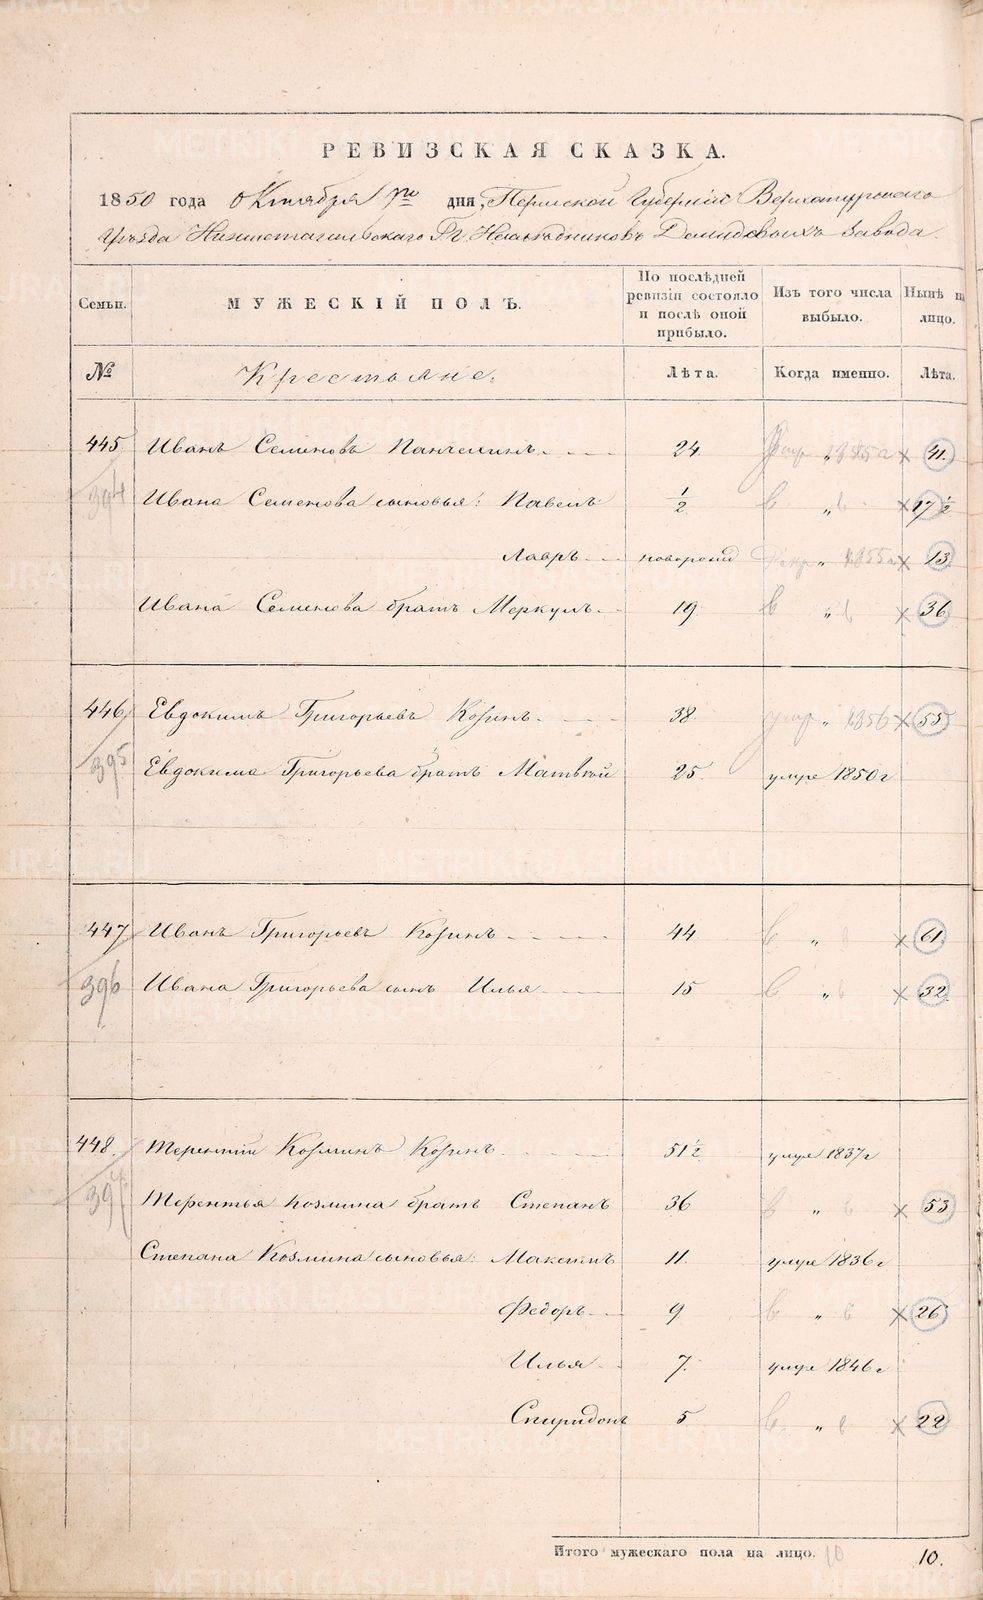 РЕВИЗСКАЯ СКАЗКА.
1850 года Октября 1го дня, Пермской Губернии Верхотурского
Уезда Нижнетагильского Гг. Наследниковъ Демидовыхъ Завода.
Семьи. МУЖЕСКІЙ ПОЛЪ. По послѣдней ревизіи состояло и послѣ оной прибыло. Изъ того числа выбыло. Нынѣ на лицо.
№ Крестьяне. Лѣта. Когда именно. Лѣта.
445 Иванъ Семеновъ 24. " 1855 х 41.
394 Ивана Семенова сыновья: Павелъ 1/2 " х 17 1/2
Лавръ новорожд " 1855 х 13
Ивана Семенова братъ Меркулъ 19 " х 36
446 Евдокимъ Григорьевъ Козинъ 38 умр " 1856 х 55
395 Евдокима Григорьева братъ Матвѣй 25. умре 1850 г
447 Иванъ Григорьевъ Козинъ 44 " х 61.
396 Ивана Григорьева сынъ Илья 15 " х 32.
448. Терентий Козминъ Козинъ 51 1/2 умре 1837 г
397 Терентья Козмина братъ Степанъ 36 " х 53
Степана Козмина сыновья: Максимъ 11. умре 1836 г
Федоръ 9 " х 26
Илья 7. умре 1846 г
Спиридонъ 5 " х 22
Итого мужескаго пола на лицо. 10 10.
METRIKI.GASO-URAL.RU